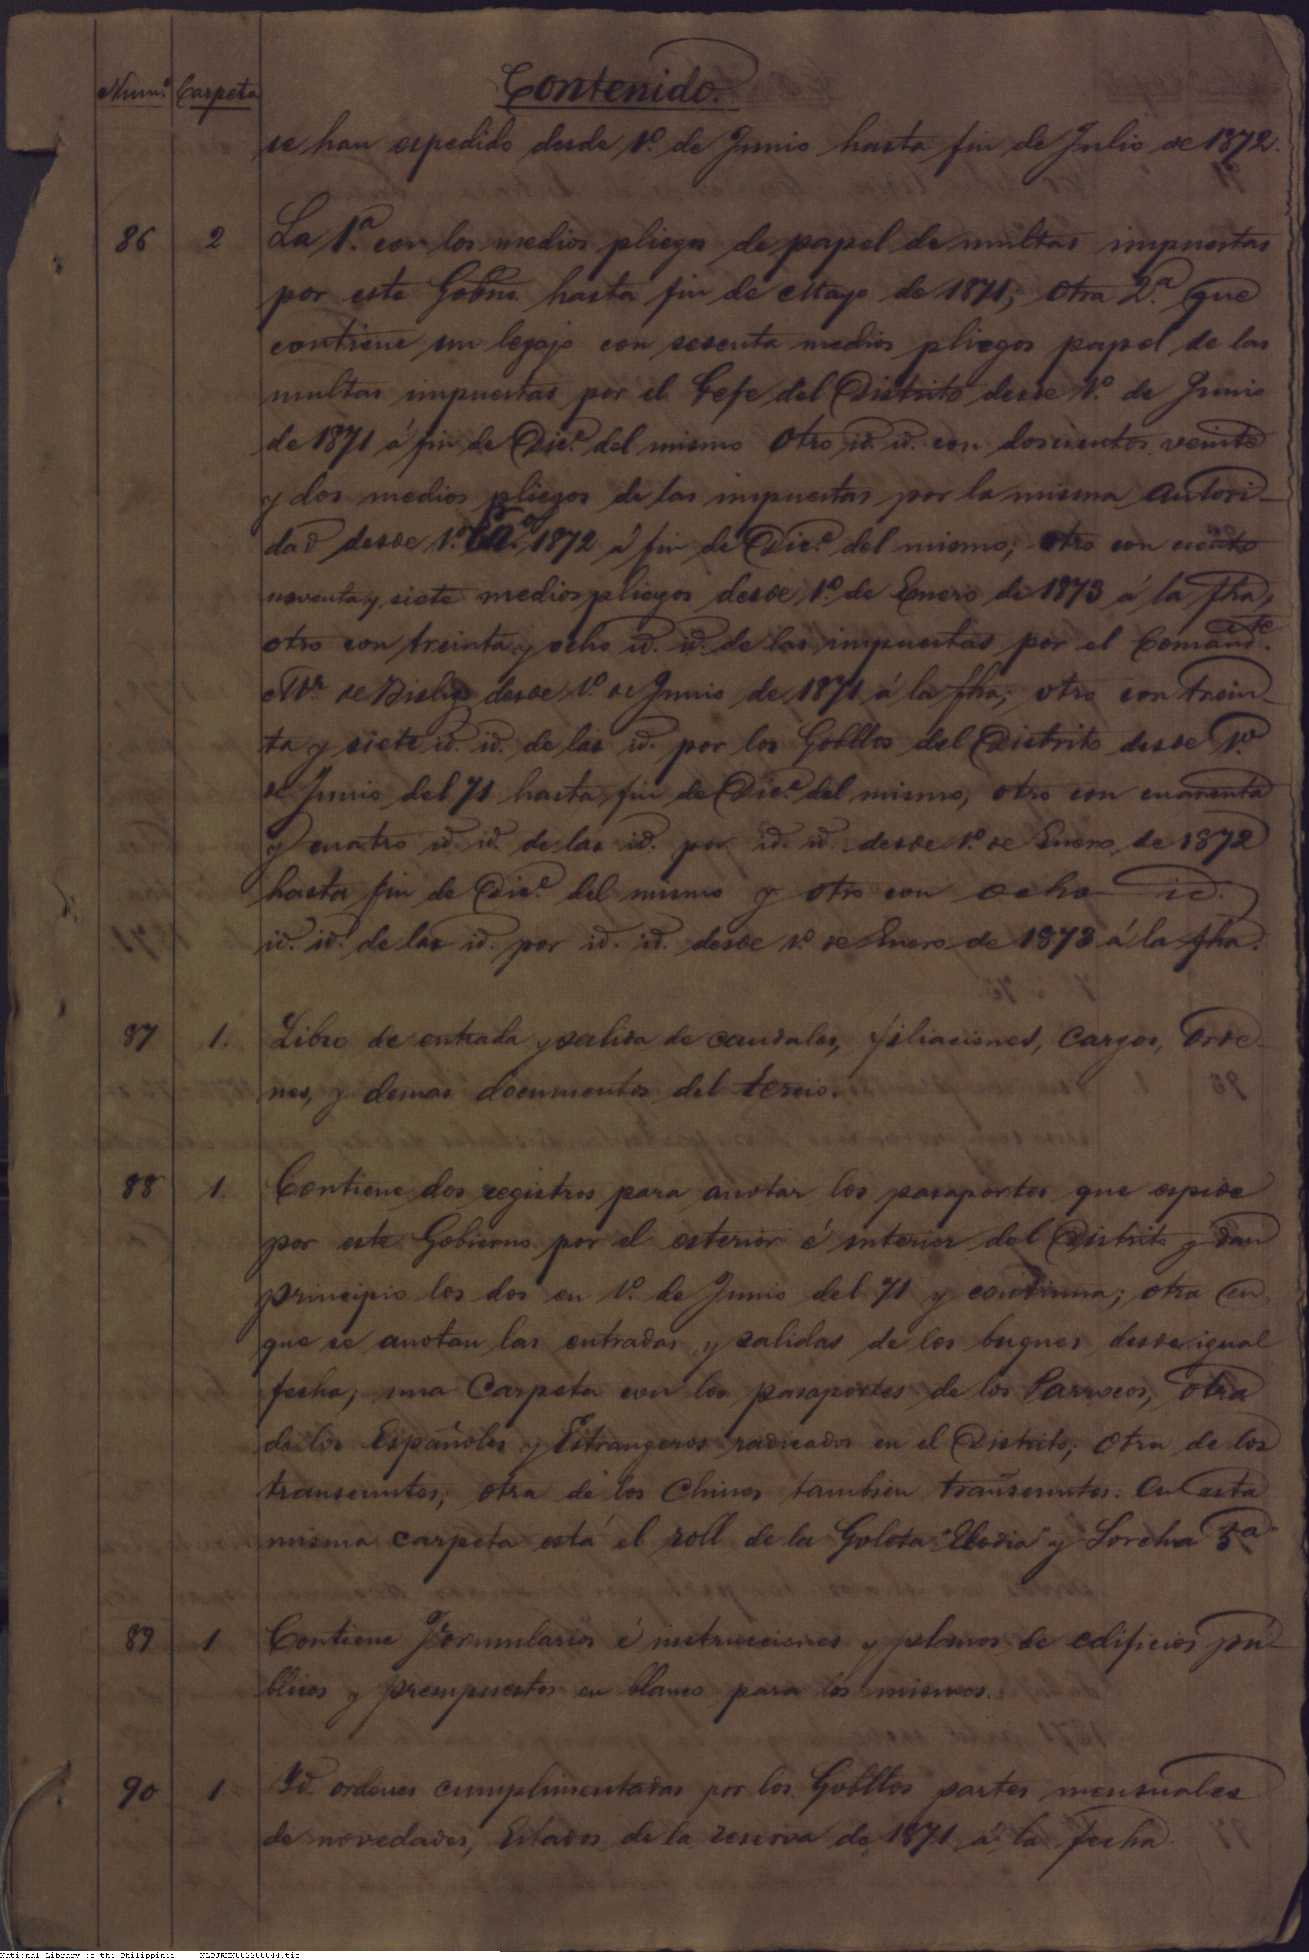 Num.º Carpeta Contenido.
se han espedido desde 1º. de Junio hasta fin de Julio de 1872.
86 2 La 1.ª con los medios pliegos de papel de multas impuestas
por este Gobno. hasta fin de Mayo de 1871; otra 2.ª que
contiene un legajo con sesenta medios pliegos papel de las
multas impuestas por el Gefe del Distrito desde 1º. de Junio
de 1871 á fin de Dic.e del mismo Otro id. id. con doscientos veinte
y dos medios pliegos de las impuestas por la misma autori-
dad desde 1º. En.º 1872 á fin de Dic.e del mismo; otro con ciento
noventa y siete medios pliegos desde 1º. de Enero de 1873 á la fha,
otro con treinta y ocho id. id. de las impuestas por el Comand.te
Mr. de Bislig desde 1º. de Junio de 1871 á la fha; otro con trein-
ta y siete id. id. de las id. por los Gobllos del Distrito desde 1º.
de Junio del 71 hasta fin de Dic.e del mismo, otro con cuarenta
y cuatro id. id. de las id. por id. id. desde 1º. de Enero de 1872
hasta fin de Dic.e del mismo y otro con ocho id.
id. id. de las id. por id. id. desde 1º. de Enero de 1873 á la fha.
87 1. Libro de entrada y salida de caudales, filiaciones, cargos, orde-
nes, y demas documentos del tercio.
88 1. Contiene dos registros para anotar los pasaportes que espide
por este Gobierno por el esterior é interior del Distrito y dan
principio los dos en 1º. de Junio del 71 y continua; otra en
que se anotan las entradas y salidas de los buques desde igual
fecha; una Carpeta con los pasaportes de los Parrocos, otra
de los Españoles y Estrangeros radicados en el Distrito; otra de los
transeuntes; otra de los Chinos tambien transeuntes. En esta
misma carpeta está el roll de la Goleta y Lorcha 3ª
89 1 Contiene Formularios é instrucciones y planos de edificios pú-
blicos y presupuestos en blanco para los mismos.
90 1 Id. ordenes cumplimentadas por los Gobllos partes mensuales
de novedades, Estados de la reserva de 1871 á la fecha
National Library of the Philippines